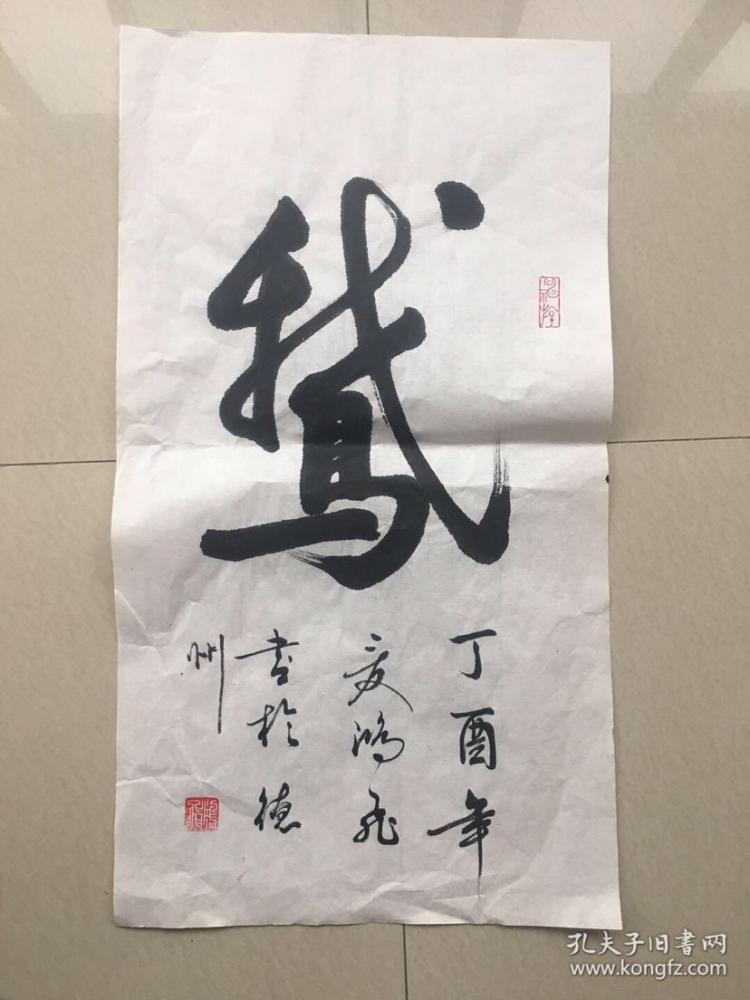 鵞
丁酉年
鴻飛
書於德
州
孔夫子旧書网
www.kongfz.com